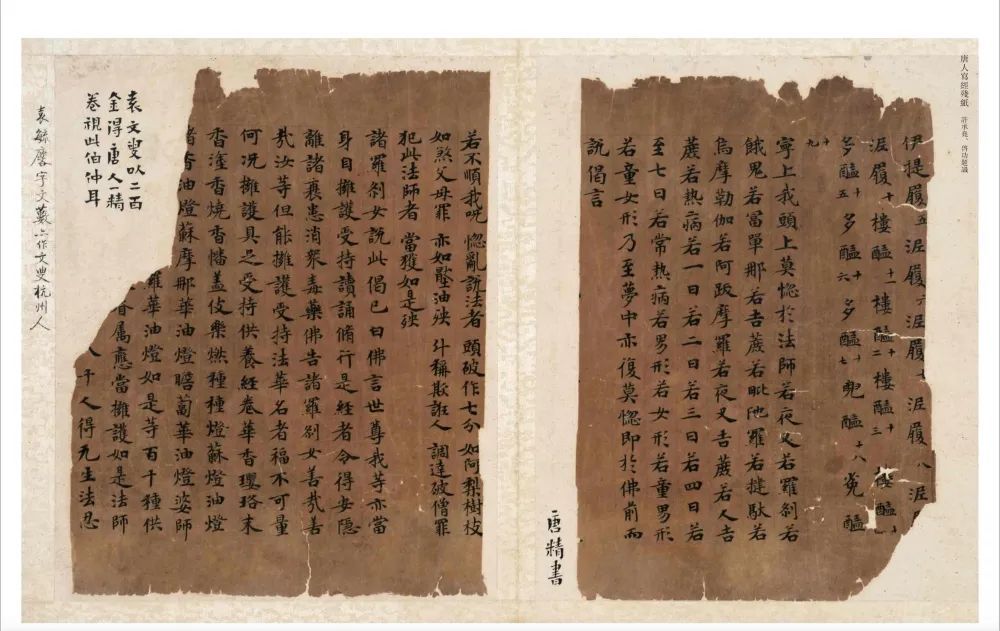 唐人寫經殘紙 許承堯、啓功題識
伊提履五 泥履六 泥履七 泥履八 泥
泥履十 樓醯十一 樓醯十二 樓醯十三 樓醯十
多醯十五 多醯十六 多醯十七 兜醯十八 㝹醯
十九
寧上我頭上莫惱於法師若夜叉若羅剎若
餓鬼若富單那若吉蔗若毗陀羅若揵馱若
烏摩勒伽若阿跋摩羅若夜叉吉蔗若人吉
蔗若熱病若一日若二日若三日若四日若
至七日若常熱病若男形若女形若童男形
若童女形乃至夢中亦復莫惱即於佛前而
說偈言
唐精書
若不順我呪 惱亂說法者 頭破作七分 如阿梨樹枝
如煞父母罪 亦如壓油殃 斗稱欺誑人 調達破僧罪
犯此法師者 當獲如是殃
諸羅剎女說此偈已白佛言世尊我等亦當
身自擁護受持讀誦脩行是經者令得安隱
離諸衰患消衆毒藥佛告諸羅剎女善哉善
哉汝等但能擁護受持法華名者福不可量
何況擁護具足受持供養經卷華香瓔珞末
香塗香燒香幡蓋伎樂燃種種燈蘇燈油燈
諸香油燈蘇摩那華油燈瞻蔔華油燈婆師
羅華油燈如是等百千種供
眷屬應當擁護如是法師
人千人得无生法忍
袁文叟以二百
金得唐人一精
卷視此伯仲耳
袁毓麐字文藪亦作文叟杭州人